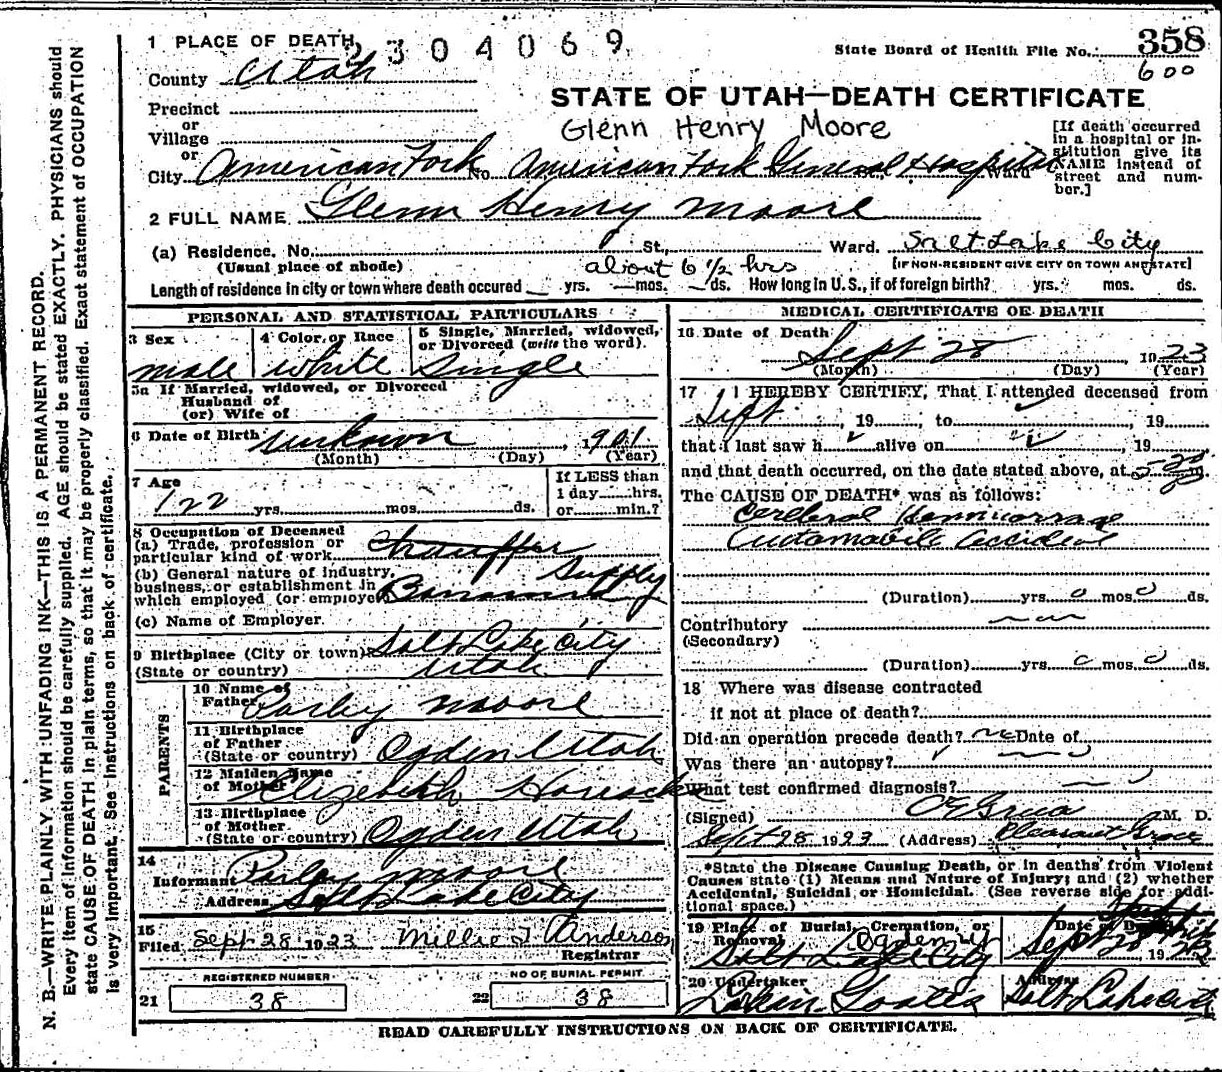 1 PLACE OF DEATH
2304069
State Board of Health File No. 358
600
County Utah
STATE OF UTAH—DEATH CERTIFICATE
Precinct
or
Village
Glenn Henry Moore
or
City American Fork No. American Fork General Hospital Ward
[If death occurred
in a hospital or in-
stitution give its
NAME instead of
street and num-
ber.]
2 FULL NAME Glenn Henry Moore
(a) Residence. No. St. Ward. Salt Lake City
(Usual place of abode)
[IF NON-RESIDENT GIVE CITY OR TOWN AND STATE]
about 6 1/2 hrs
Length of residence in city or town where death occured yrs. mos. ds. How long in U. S., if of foreign birth? yrs. mos. ds.
PERSONAL AND STATISTICAL PARTICULARS
3 Sex
male
4 Color or Race
white
5 Single, Married, widowed,
or Divorced (write the word).
Single
5a If Married, widowed, or Divorced
Husband of
(or) Wife of
6 Date of Birth unknown, 1901
(Month) (Day) (Year)
7 Age
22 yrs. mos. ds.
If LESS than
1 day hrs.
or min.?
8 Occupation of Deceased
(a) Trade, profession or
particular kind of work
(b) General nature of industry,
business, or establishment in
which employed (or employer) Supply
(c) Name of Employer.
9 Birthplace (City or town) Salt Lake City
(State or country) Utah
PARENTS
10 Name of
Father Parley Moore
11 Birthplace
of Father
(State or country) Ogden Utah
12 Maiden Name
of Mother Elizabeth
13 Birthplace
of Mother
(State or country) Ogden Utah
14
Informant Parley Moore
Address Salt Lake City
15
Filed Sept 28 1923 Millie T Anderson
Registrar
REGISTERED NUMBER
21 38
NO OF BURIAL PERMIT
22 38
MEDICAL CERTIFICATE OF DEATH
16 Date of Death Sept 28 1923
(Month) (Day) (Year)
17 I HEREBY CERTIFY, That I attended deceased from
Sept, 19, to, 19
that I last saw h alive on, 19
and that death occurred, on the date stated above, at m.
The CAUSE OF DEATH* was as follows:
Cerebral Hemmorrage
Automobile accident
(Duration) yrs. o mos. o ds.
Contributory
(Secondary)
(Duration) yrs. o mos. o ds.
18 Where was disease contracted
if not at place of death?
Did an operation precede death? no Date of
Was there an autopsy?
What test confirmed diagnosis?
(Signed) O E Grua M. D.
Sept 28 1923 (Address) Pleasant Grove
*State the Disease Causing Death, or in deaths from Violent
Causes state (1) Means and Nature of Injury; and (2) whether
Accidental, Suicidal or Homicidal. (See reverse side for addi-
tional space.)
19 Place of Burial, Cremation, or
Removal Ogden
Salt Lake City
Date of
Sept 28 1923
20 Undertaker
Address
Salt Lake City
READ CAREFULLY INSTRUCTIONS ON BACK OF CERTIFICATE.
N. B.—WRITE PLAINLY WITH UNFADING INK—THIS IS A PERMANENT RECORD.
Every item of information should be carefully supplied. AGE should be stated EXACTLY. PHYSICIANS should
state CAUSE OF DEATH in plain terms, so that it may be properly classified. Exact statement of OCCUPATION
is very important. See instructions on back of certificate.